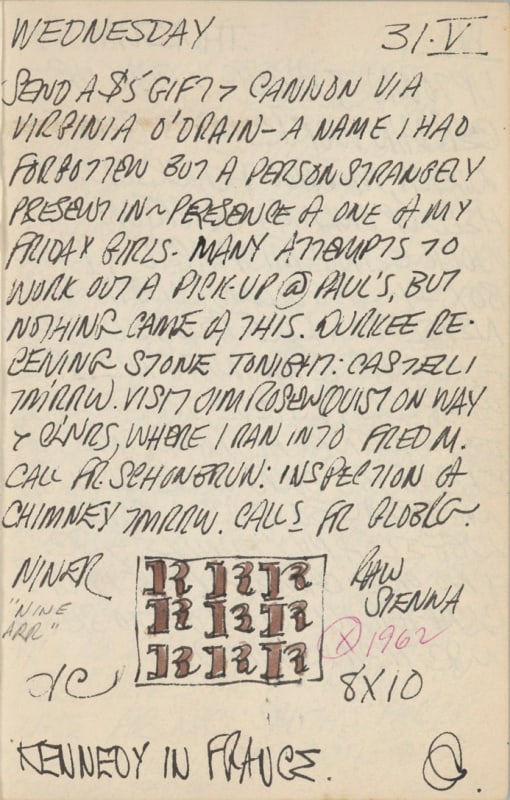 WEDNESDAY 31·V
SEND A $5 GIFT > CANNON VIA
VIRGINIA O'DRAIN – A NAME I HAD
FORGOTTEN BUT A PERSON STRANGELY
PRESENT IN ~ PRESENCE OF ONE OF MY
FRIDAY GIRLS. MANY ATTEMPTS TO
WORK OUT A PICK-UP @ PAUL'S, BUT
NOTHING CAME OF THIS. DURKEE RE-
CEIVING STONE TONIGHT: CASTELLI
TMRRW. VISIT JIM ROSENQUIST ON WAY
> CLNRS, WHERE I RAN INTO FRED M.
CALL FR. SCHONGRUN: INSPECTION OF
CHIMNEY TMRRW. CALLS FR
NINER
"NINE
ARR"
R R R
R R R
R R R
RAW
SIENNA
X 1962
8X10
KENNEDY IN FRANCE.